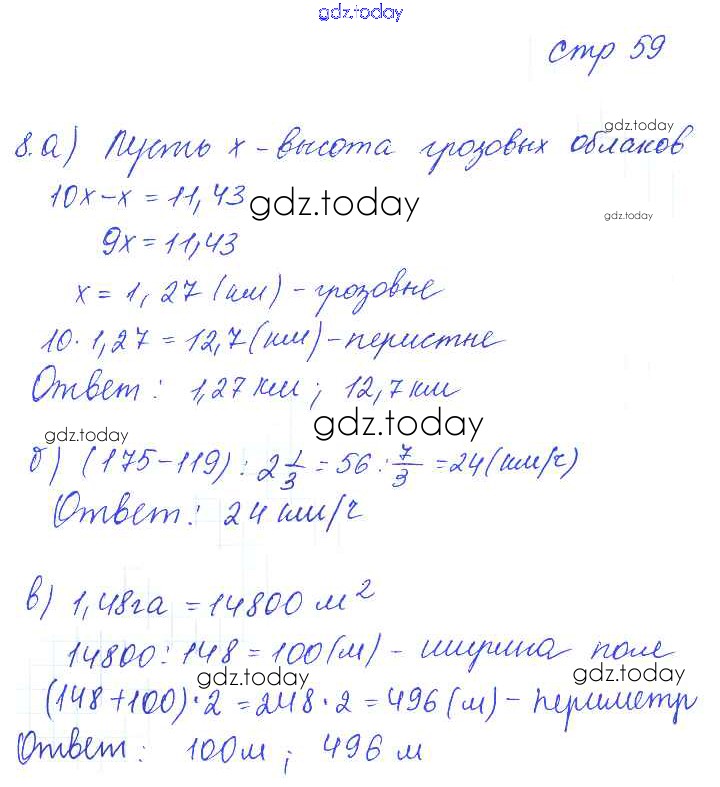 gdz.today
стр 59
gdz.today
8. а) Пусть x - высота грозовых облаков
10x - x = 11,43
gdz.today
gdz.today
9x = 11,43
x = 1,27 (км) - грозовые
10 · 1,27 = 12,7 (км) - перистые
Ответ: 1,27 км ; 12,7 км
gdz.today
gdz.today
б) (175 - 119) : 2 1/3 = 56 : 7/3 = 24 (км/ч)
Ответ: 24 км/ч
в) 1,48 га = 14800 м²
14800 : 148 = 100 (м) - ширина поле
gdz.today
gdz.today
(148 + 100) · 2 = 248 · 2 = 496 (м) - периметр
Ответ: 100 м ; 496 м